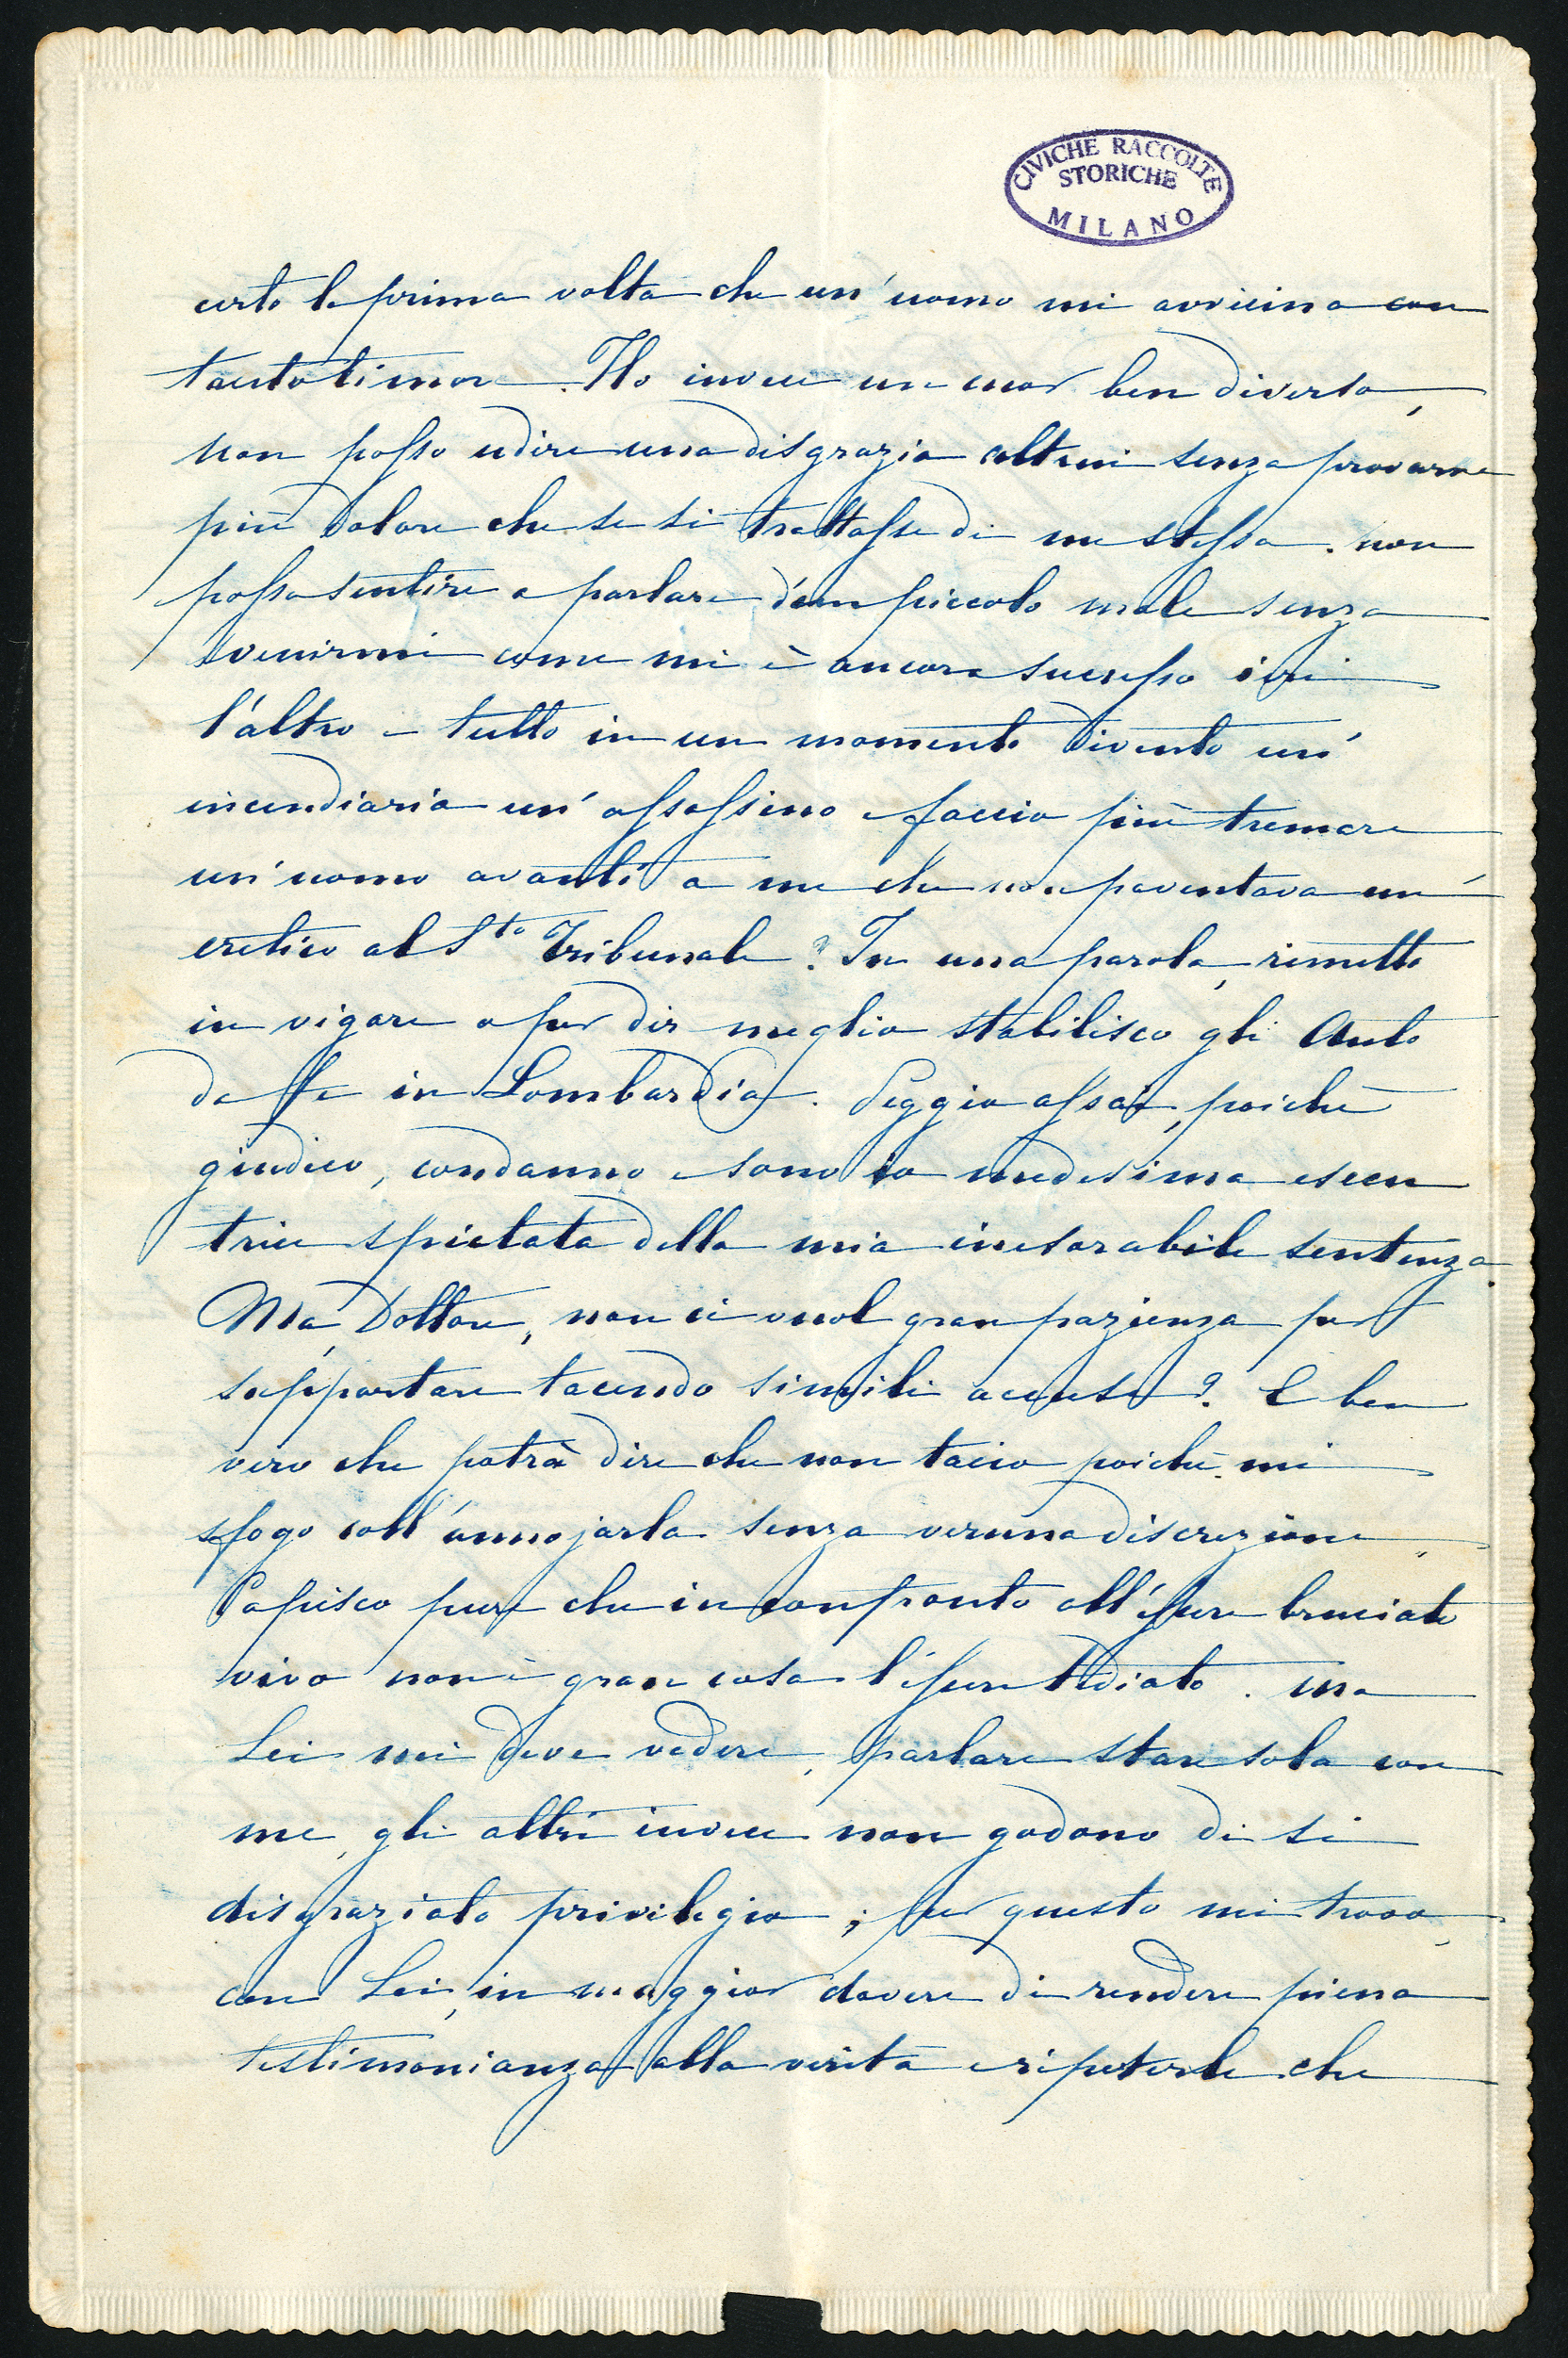 CIVICHE RACCOLTE
STORICHE
MILANO
certo la prima volta che un' uomo mi avvicina con
tanto timore. Ho invece un cuor ben diverso,
non posso udire una disgrazia altrui senza provarne
più dolore che se si trattasse di me stessa. non
posso sentire a parlare d'un piccolo male senza
svenirmi come mi è ancora successo ieri
l'altro e tutto in un momento divento un'
incendiaria un' assassino e faccio più tremare
un' uomo avanti a me che non paventava un'
eretico al Sto Tribunale? In una parola, rimetto
in vigore o per dir meglio stabilisco gli Auto
da fe in Lombardia. Peggio assai, poichè
giudico, condanno e sono io medesima esecu
trice spietata della mia inesorabile sentenza.
Ma, Dottore, non ci vuol gran pazienza per
sopportare tacendo simili accuse? E ben
vero che potrà dire che non taccio poichè mi
sfogo coll' annojarla senza veruna discrezione
Capisco pure che in confronto all' esser bruciato
vivo non è gran cosa l' esser tediato. ma
Lei mi deve vedere, parlare stare solo con
me, gli altri invece non godono di si
disgraziato privilegio; per questo mi trovo,
con Lei, in maggior dovere di rendere piena
testimonianza alla verità e ripeterle che